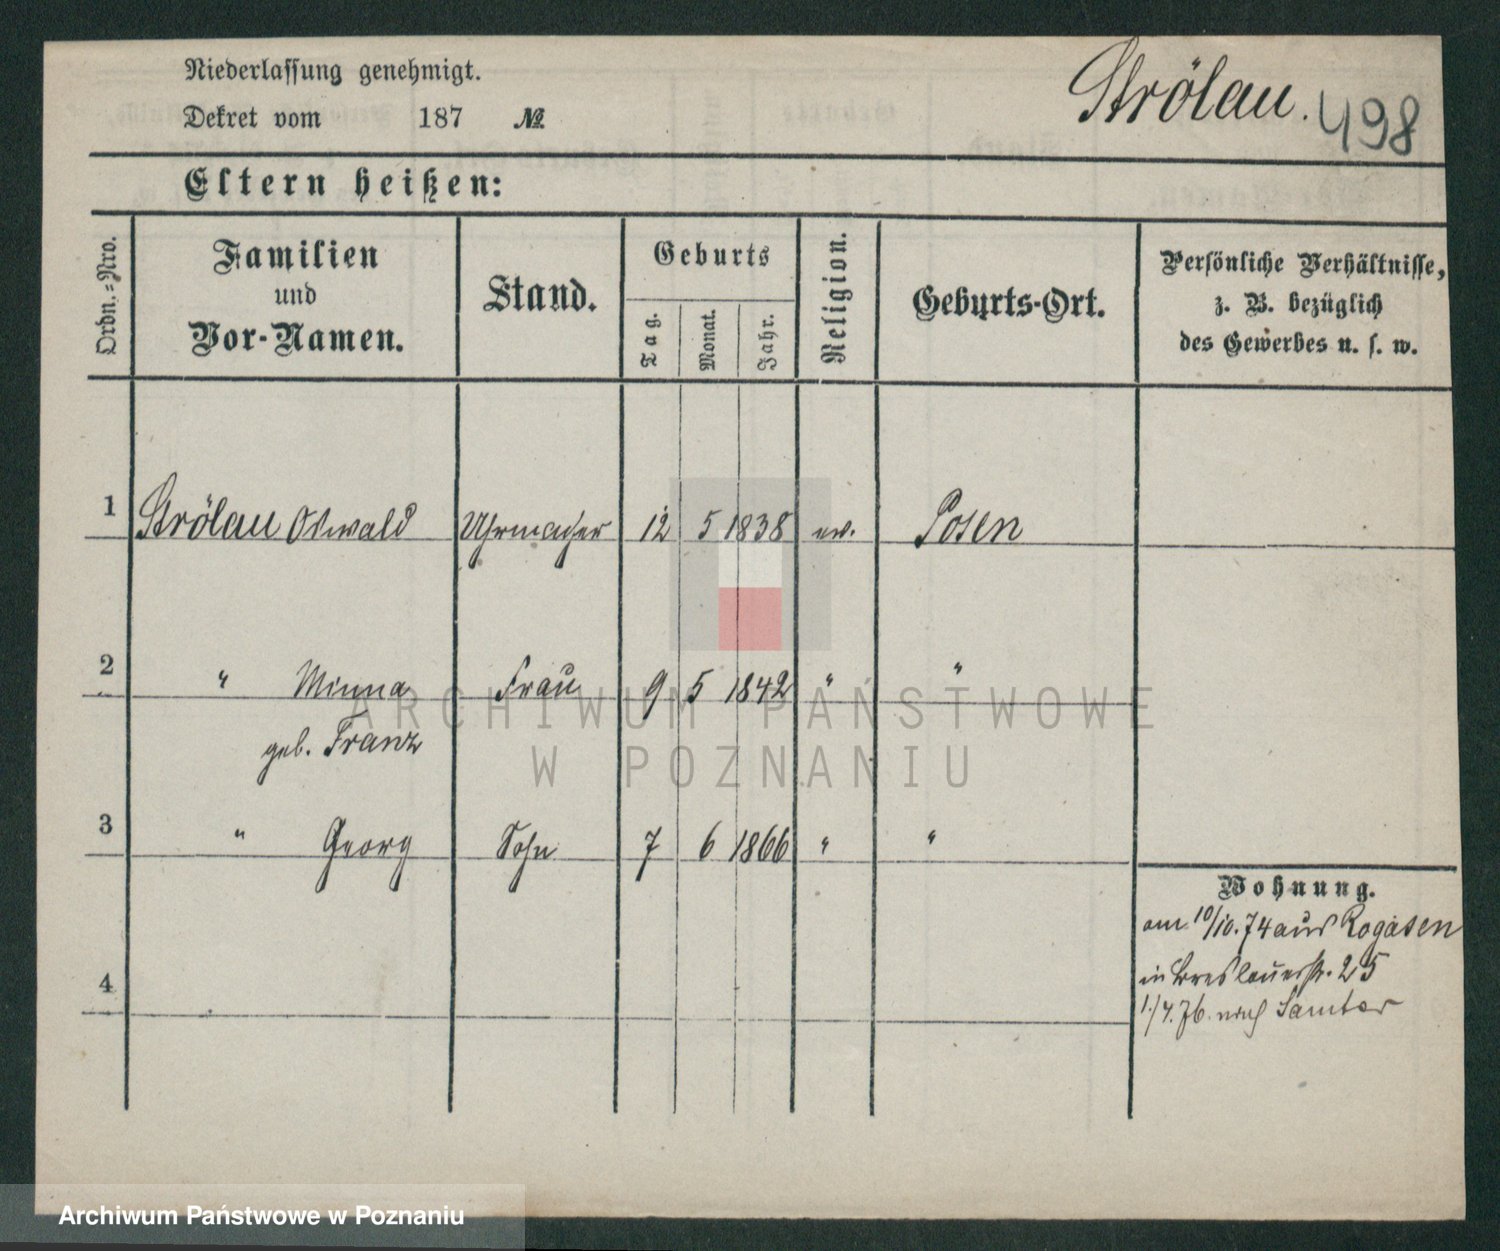 Niederlassung genehmigt.
Dekret vom 187 №
Strölau. 498
Eltern heißen:
Ordn.=Nro.
Familien
und
Vor-Namen.
Stand.
Geburts
Tag.
Monat.
Jahr.
Religion.
Geburts-Ort.
Persönliche Verhältnisse,
z. B. bezüglich
des Gewerbes u. s. w.
1 Strölau Oswald Uhrmacher 12 5 1838 ev. Posen
2 " Minna Frau 9 5 1842 " "
geb. Franz
3 " Georg Sohn 7 6 1866 " "
4
Wohnung.
am 10/10.74 aus Rogasen
in Breslauerstr. 25
1./4.76. nach Samter
ARCHIWUM PAŃSTWOWE
W POZNANIU
Archiwum Państwowe w Poznaniu